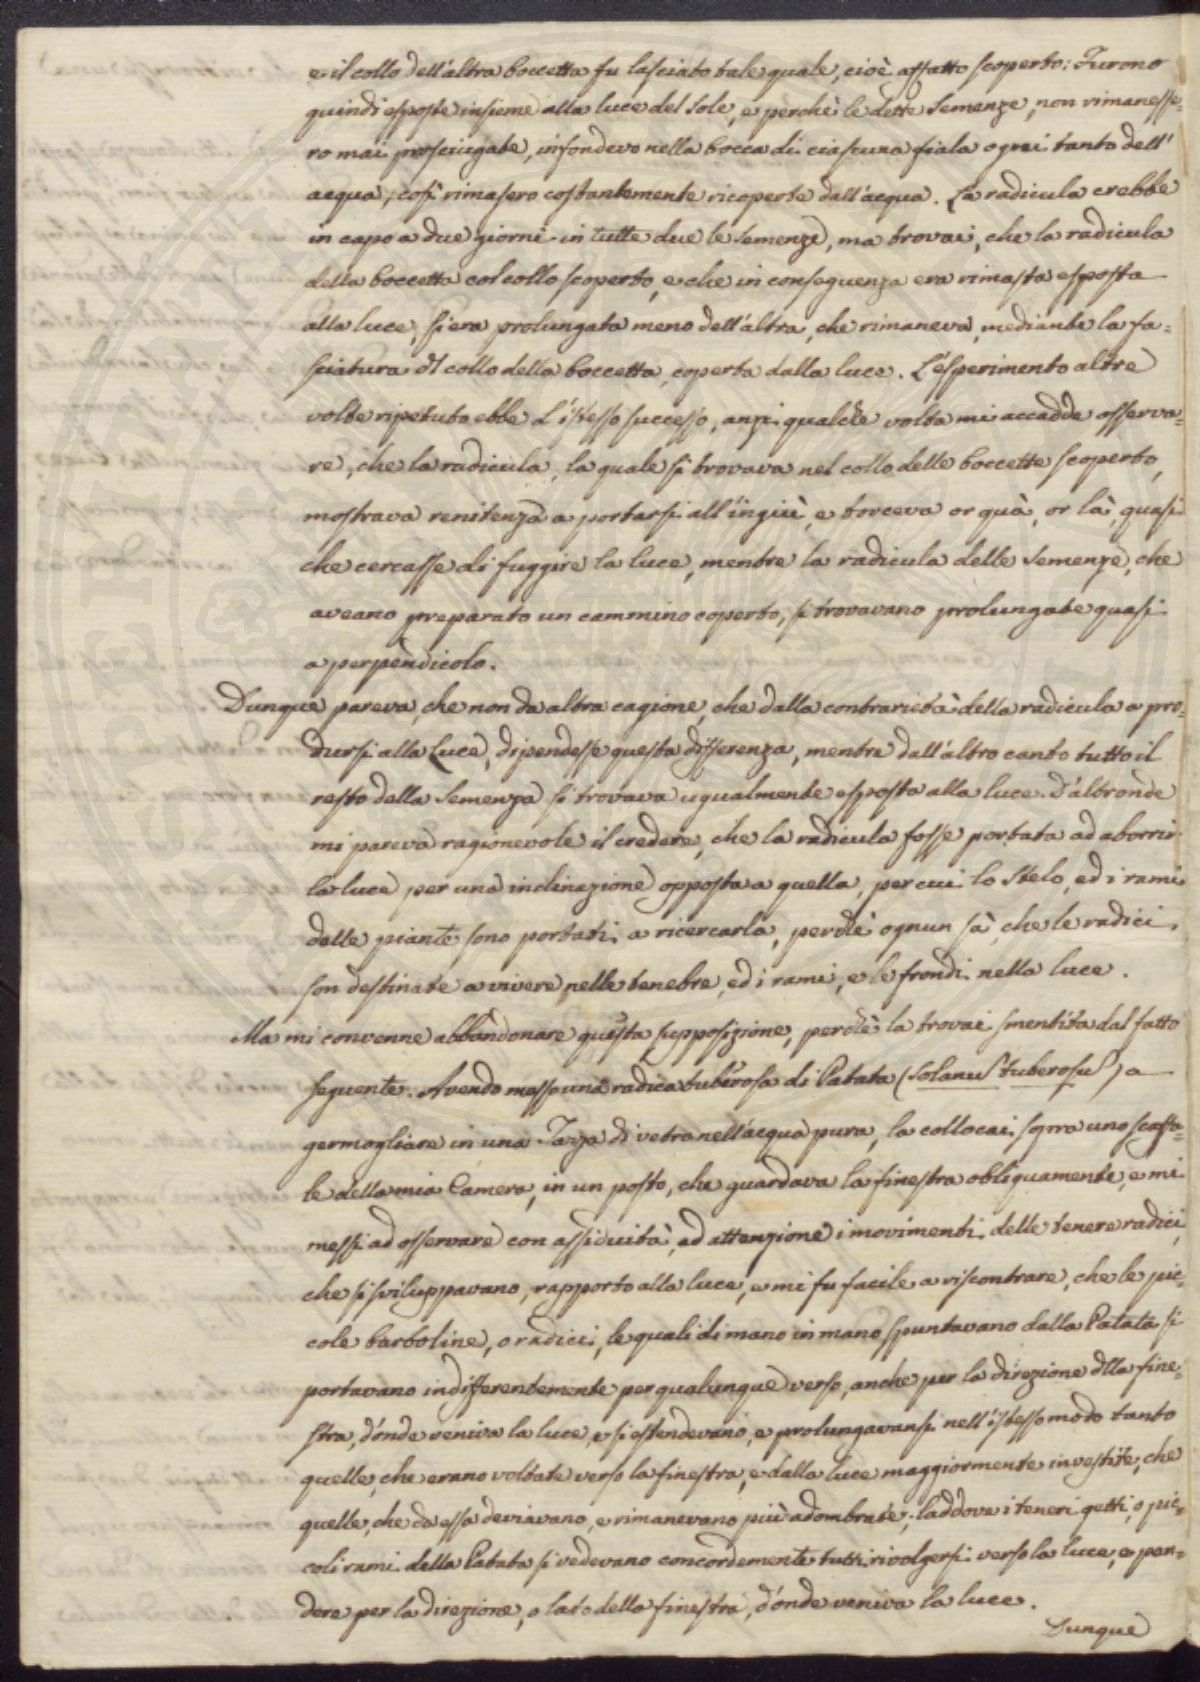 e il collo dell'altra boccetta fu lasciato tale quale, cioè affatto scoperto: Furono
quindi esposte insieme alla luce del Sole, e perchè le dette Semenze, non rimanesse=
ro mai prosciugate, infondevo nella bocca di ciascuna fiala ogni tanto dell'
acqua, così rimasero costantemente ricoperte dall'acqua. La radicula crebbe
in capo a due giorni in tutte due le Semenze, ma trovai, che la radicula
della boccetta col collo scoperto, e che in conseguenza era rimasta esposta
alla luce, si era prolungata meno dell'altra, che rimaneva, mediante la fa=
sciatura dl collo della boccetta, coperta dalla luce. L'esperimento altre
volte ripetuto ebbe l'istesso successo, anzi qualche volta mi accadde osserva=
re, che la radicula, la quale si trovava nel collo delle boccette scoperto,
mostrava renitenza a portarsi all'ingiù, e torceva or quà, or là, quasi
che cercasse di fuggire la luce, mentre la radicula delle Semenze, che
aveano preparato un cammino coperto, si trovavano prolungate quasi
a perpendicolo.
Dunque pareva, che non da altra cagione, che dalla contrarietà della radicula a pro=
dursi alla Luce, dipendesse questa differenza, mentre dall'altro canto tutto il
resto della Semenza si trovava ugualmente esposta alla luce. D'altronde
mi pareva ragionevole il credere, che la radicula fosse portata ad aborrir
la luce per una inclinazione opposta a quella, per cui lo Stelo, ed i rami
delle piante sono portati a ricercarla, perchè ognun sà, che le radici
son destinate a vivere nelle tenebre, ed i rami, e le frondi nella luce.
Ma mi convenne abbandonare questa supposizione, perchè la trovai smentita dal fatto
seguente. Avendo messo una radica tuberosa di Patata (Solanu Tuberosu) a
germogliare in una Tazza di vetro nell'acqua pura, la collocai sopra uno scaffa=
le della mia Camera, in un posto, che guardava la finestra obliquamente, e mi
messi ad osservare con assiduità, ed attenzione i movimenti delle tenere radici,
che si sviluppavano, rapporto alla luce, e mi fu facile a riscontrare, che le pic=
cole barboline, o radici, le quali di mano in mano spuntavano dalla Patata si
portavano indifferentemente per qualunque verso, anche per la direzione dlla fine=
stra, d'onde veniva la luce, e si estendevano, e prolungavansi nell'istesso modo tanto
quelle, che erano voltate verso la finestra, e dalla luce maggiormente investite, che
quelle, che da essa deviavano, e rimanevano più adombrate; laddove i teneri getti, o pic=
coli rami della Patata si vedevano concordemente tutti rivolgersi verso la luce, e pen=
dere per la direzione, o lato della finestra, d'onde veniva la luce.
Dunque